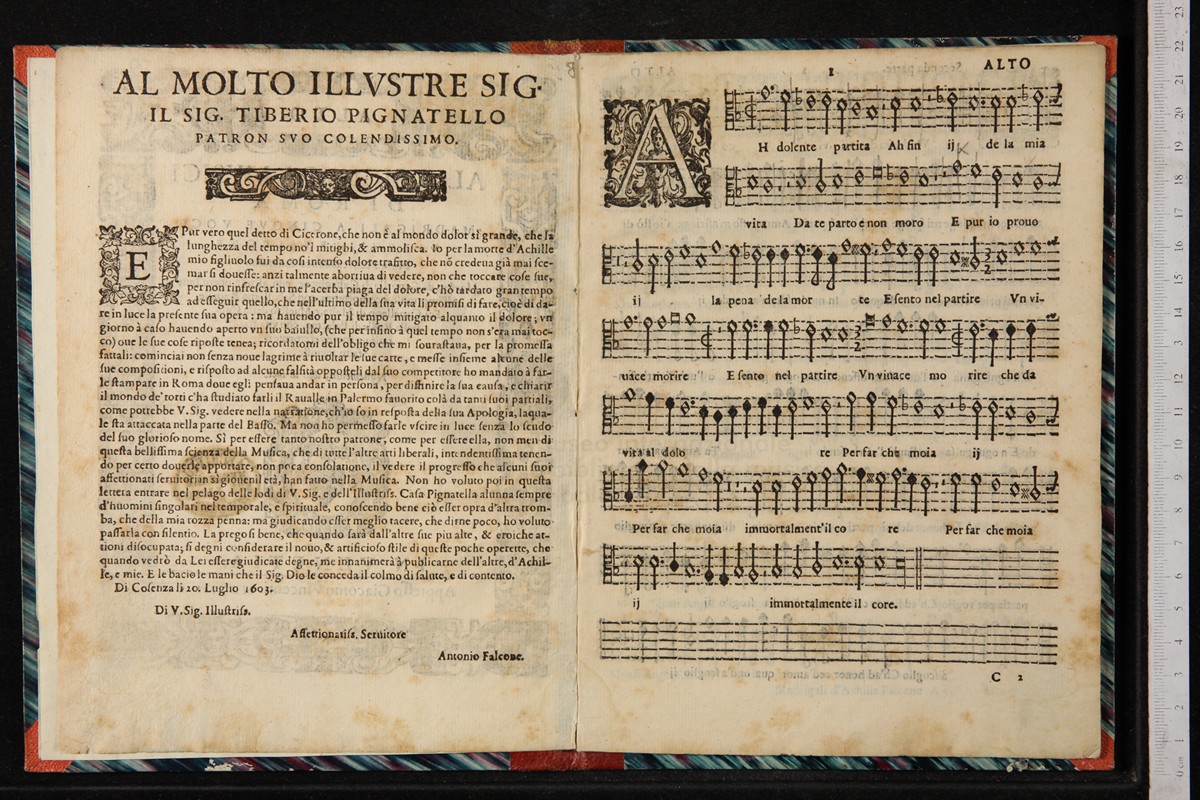 AL MOLTO ILLVSTRE SIG.
IL SIG. TIBERIO PIGNATELLO
PATRON SVO COLENDISSIMO.
E Pur vero quel detto di Cicerone, che non è al mondo dolor sì grande, che la
lunghezza del tempo no'l mitighi, & ammollisca. Io per la morte d'Achille
mio figliuolo fui da così intenso dolore trafitto, che nõ credeua già mai sce-
mar si douesse: anzi talmente abortiua di vedere, non che toccare cose sue,
per non rinfrescar in me l'acerba piaga del dolore, c'hò tardato gran tempo
ad esseguir quello, che nell'vltimo della sua vita li promisi di fare, cioè di da-
re in luce la presente sua opera: ma hauendo pur il tempo mitigato alquanto il dolore; vn
giorno à caso hauendo aperto vn suo baiullo, (che per infino à quel tempo non s'era mai toc-
co) oue le sue cose riposte tenea; ricordatomi dell'obligo che mi sourastaua, per la promessa
fattali: cominciai non senza noue lagrime à riuoltar le sue carte, e messe insieme alcune delle
sue compositioni, e risposto ad alcune falsità oppostelì dal suo competitore ho mandato à far-
le stampare in Roma doue egli pensaua andar in persona, per diffinire la sua causa, e chiarir
il mondo de' torti c'ha studiato farli il Raualle in Palermo fauorito colà da tanti suoi partiali,
come potrebbe V. Sig. vedere nella narratione, ch'io fo in risposta della sua Apologia, laqua-
le sta attaccata nella parte del Basso. Ma non ho permesso farle vscire in luce senza lo scudo
del suo glorioso nome. Sì per essere tanto nostro patrone, come per essere ella, non men di
questa bellissima scienza della Musica, che di tutte l'altre arti liberali, intendentissima tenen-
do per certo douerle apportare, non poca consolatione, il vedere il progresso che alcuni suoi
affettionati seruitori in sì giouenil età, han fatto nella Musica. Non ho voluto poi in questa
lettera entrare nel pelago delle lodi di V. Sig. e dell'Illustriss. Casa Pignatella alunna sempre
d'huomini singolari nel temporale, e spirituale, conoscendo bene ciò esser opra d'altra trom-
ba, che della mia rozza penna: ma giudicando esser meglio tacere, che dirne poco, ho voluto
passarla con silentio. La prego sì bene, che quando sarà dall'altre sue piu alte, & eroiche at-
tioni disocupata, si degni considerare il nouo, & artificioso stile di queste poche operette, che
quando vedrò da Lei essere giudicate degne, me innanimerà à publicarne dell'altre, d'Achil-
le, e mie. E le bacio le mani che il Sig. Dio le conceda il colmo di salute, e di contento.
Di Cosenza li 20. Luglio 1603.
Di V. Sig. Illustriss.
Affettionatiss. Seruitore
Antonio Falcone.
1 ALTO
AH dolente partita Ah fin ij de la mia
vita Da te parto e non moro E pur io prouo
ij la pena de la mor te E sento nel partire Vn vi-
uace morire E sento nel partire Vn viuace mo rire che da
vita al dolo re Per far che moia ij
Per far che moia immortalment'il co re Per far che moia
ij immortalmente il core.
C 2